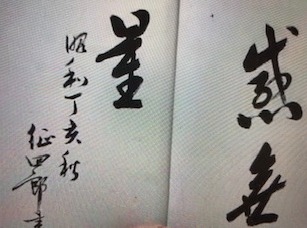 感無
量
昭和丁亥秋
征四郎